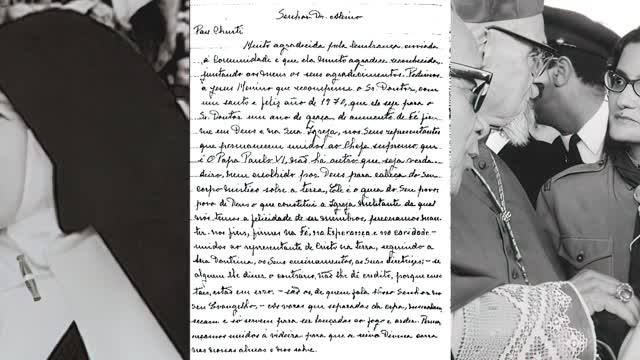 Senhor Dr. 
Pax Christi
Muito agradecida pela lembrança enviada
à Comunidade e que ela muito agradece reconhecida,
juntando aos meus os seus agradecimentos. Pedimos
a Jesus Menino que recompense o Sr. Doutor, com
um santo e feliz ano de 1970, que ele seja para o
Sr. Doutor um ano de graça, de aumento de Fé fir-
me em Deus e na Sua Igreja, nos Seus representantes
que permanecem unidos ao Chefe supremo que
é O Papa Paulo VI, não há outro que seja verda-
deiro, nem escolhido por Deus para cabeça do Seu
corpo místico sobre a terra, Ele é o guia do Seu povo,
povo de Deus o que constitui a Igreja militante da qual
nós temos a felicidade de ser membros, 
nos fieis, firmes na Fé, na Esperança e na caridade
unidos ao representante de Cristo na terra, seguindo a
Sua Doutrina, os Seus ensinamentos, as Suas directrizes; – se
alguem lhe disser o contrário, não lhe dê crédito, porque esses
tais, estão em erro. – são os, de quem fala Nosso Senhor no
seu Evangelho, – essas varas que separadas da cepa,
secam e só servem para ser lançadas ao fogo e arder.
unidos à videira para que a seiva Divina corra
nas nossas almas e nos salve.